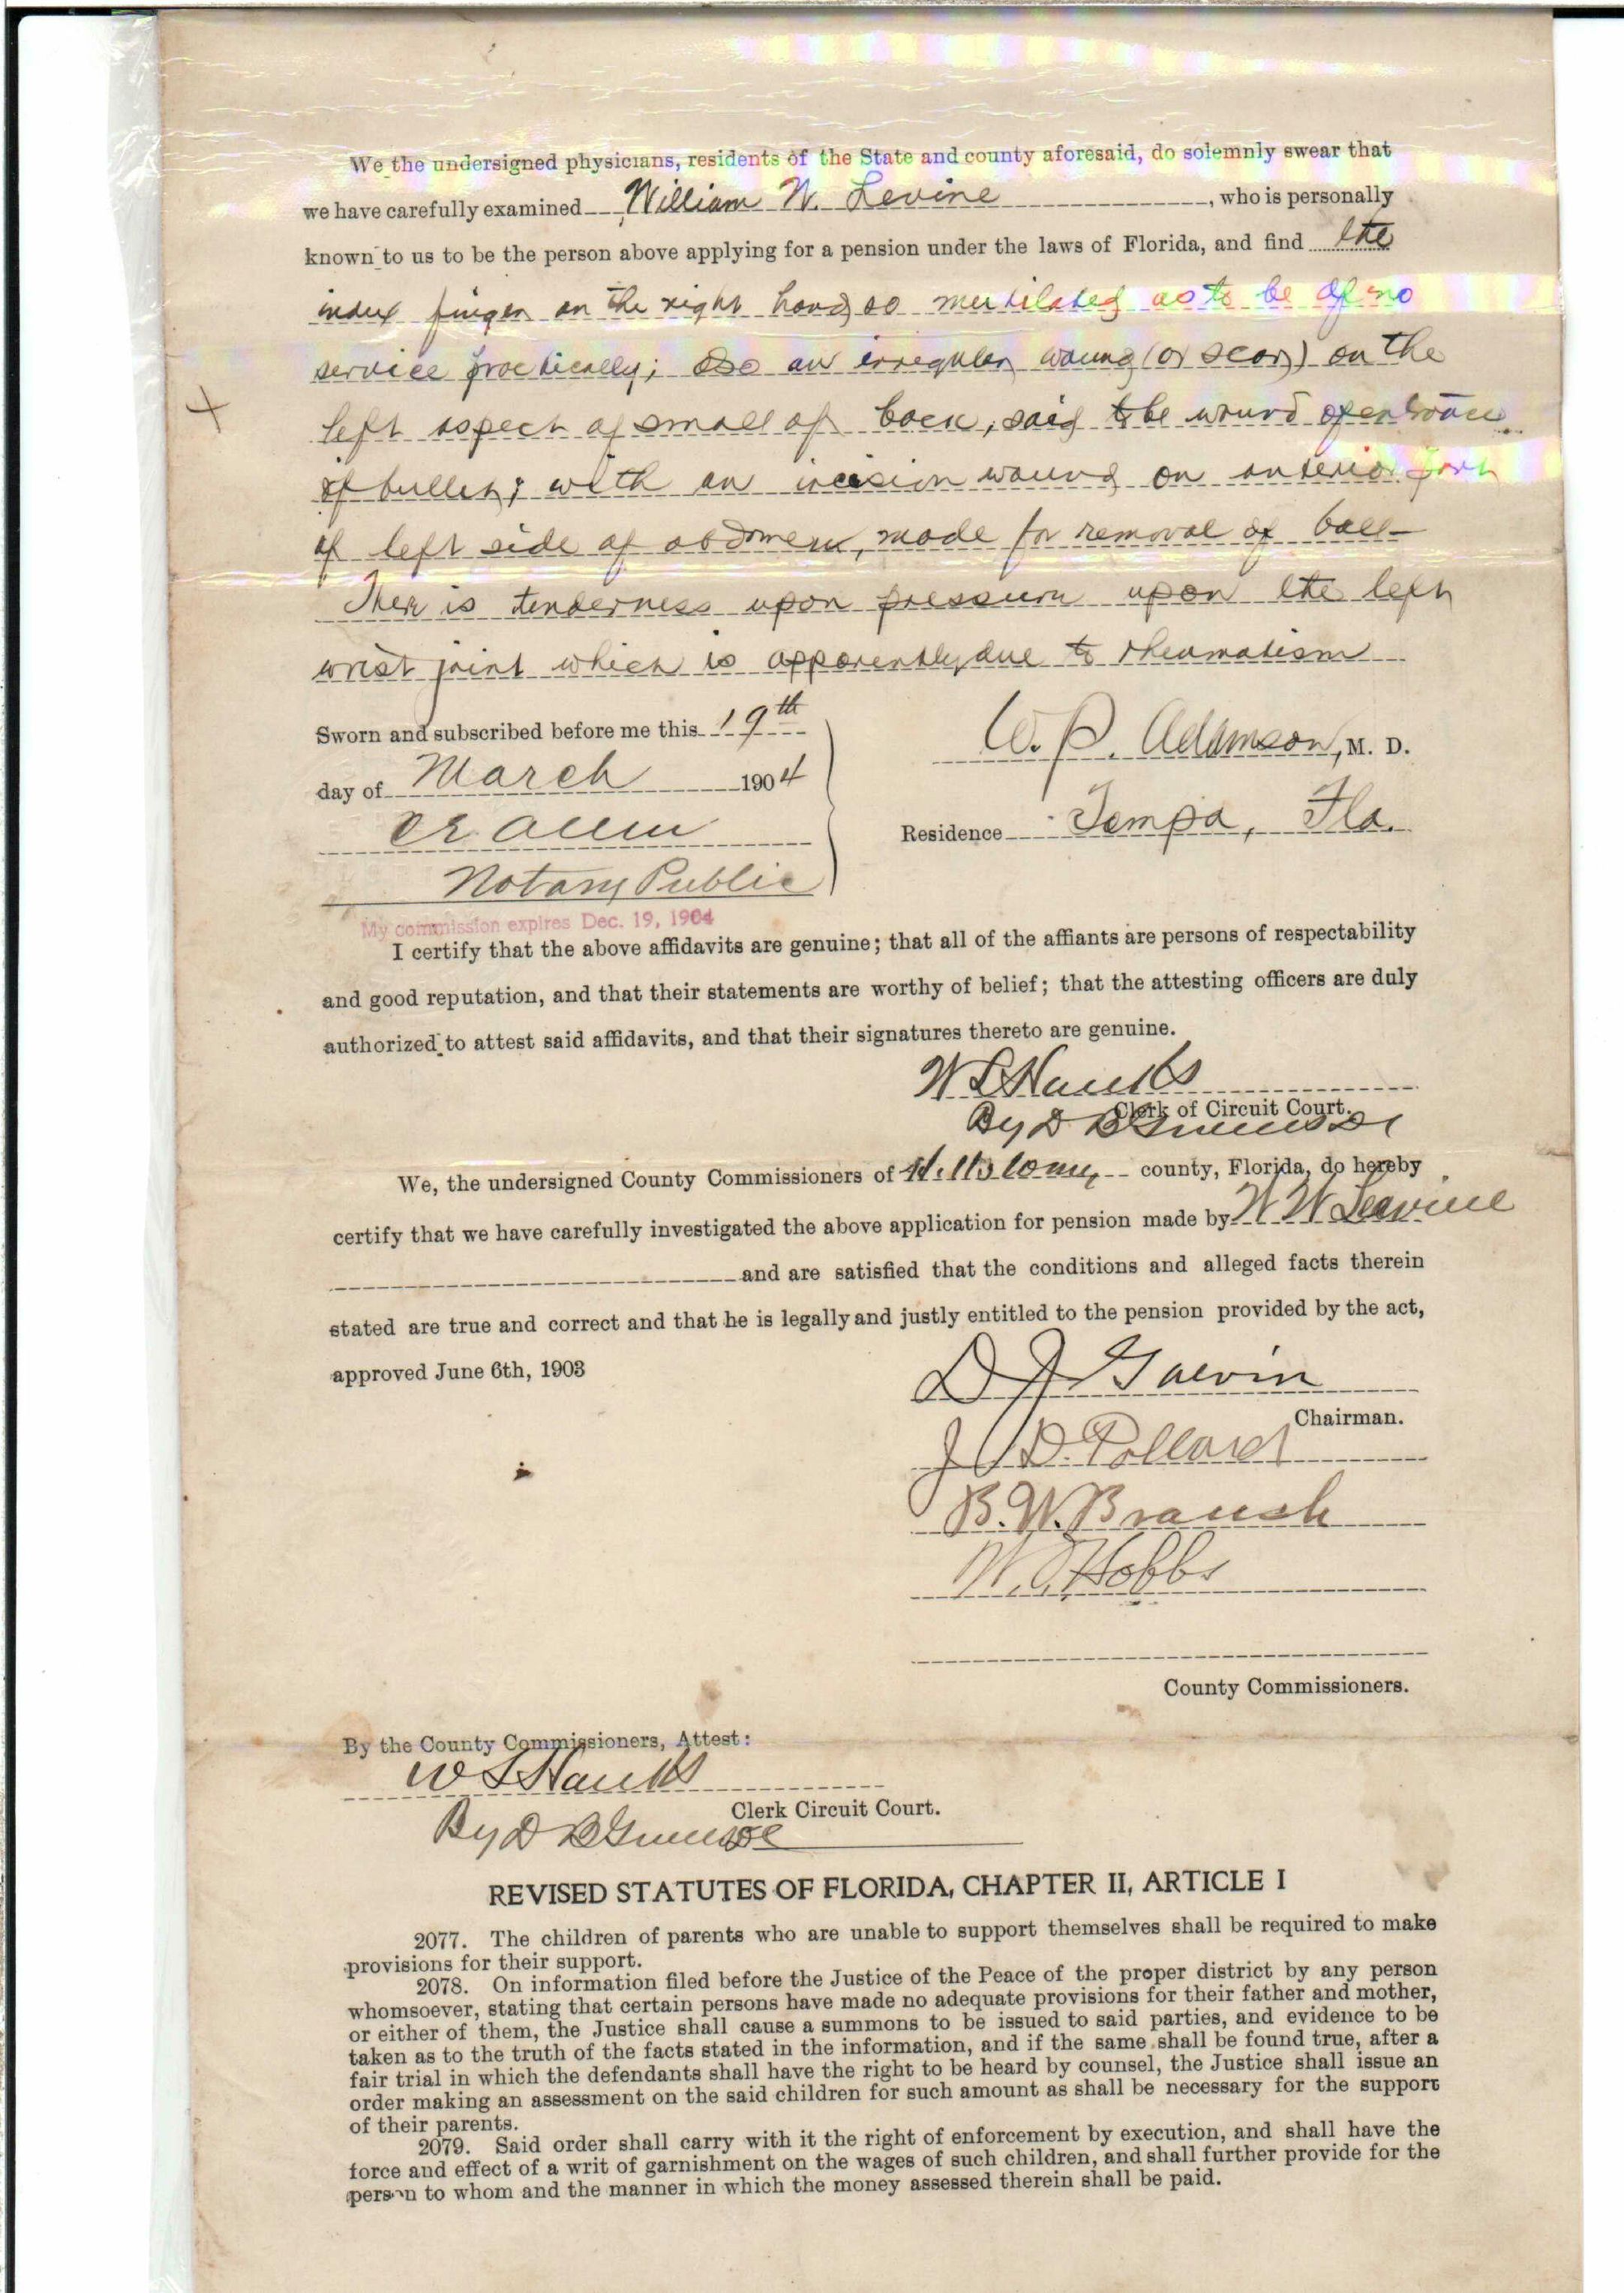 We the undersigned physicians, residents of the State and county aforesaid, do solemnly swear that
we have carefully examined William W. Levine, who is personally
known to us to be the person above applying for a pension under the laws of Florida, and find the
index finger on the right hand so mutilated as to be of no
service practically; also an irregular wound (or scar) on the
left aspect of small of back, said to be wound of entrance
of bullet; with an incision wound on anterior part
of left side of abdomen, made for removal of ball—
There is tenderness upon pressure upon the left
wrist joint which is apparently due to rheumatism
Sworn and subscribed before me this 19th
day of March 1904
Notary Public
My commission expires Dec. 19, 1904
W. P. Adamson, M. D.
Residence Tampa, Fla.
I certify that the above affidavits are genuine; that all of the affiants are persons of respectability
and good reputation, and that their statements are worthy of belief; that the attesting officers are duly
authorized to attest said affidavits, and that their signatures thereto are genuine.
Clerk of Circuit Court.
By D B
We, the undersigned County Commissioners of county, Florida, do hereby
certify that we have carefully investigated the above application for pension made by W W Leavine
and are satisfied that the conditions and alleged facts therein
stated are true and correct and that he is legally and justly entitled to the pension provided by the act,
approved June 6th, 1903
D J Galvin
Chairman.
J D. Pollard
B. W. Branch
Hobbs
County Commissioners.
By the County Commissioners, Attest:
Clerk Circuit Court.
By D B
REVISED STATUTES OF FLORIDA, CHAPTER II, ARTICLE I
2077. The children of parents who are unable to support themselves shall be required to make
provisions for their support.
2078. On information filed before the Justice of the Peace of the proper district by any person
whomsoever, stating that certain persons have made no adequate provisions for their father and mother,
or either of them, the Justice shall cause a summons to be issued to said parties, and evidence to be
taken as to the truth of the facts stated in the information, and if the same shall be found true, after a
fair trial in which the defendants shall have the right to be heard by counsel, the Justice shall issue an
order making an assessment on the said children for such amount as shall be necessary for the support
of their parents.
2079. Said order shall carry with it the right of enforcement by execution, and shall have the
force and effect of a writ of garnishment on the wages of such children, and shall further provide for the
person to whom and the manner in which the money assessed therein shall be paid.